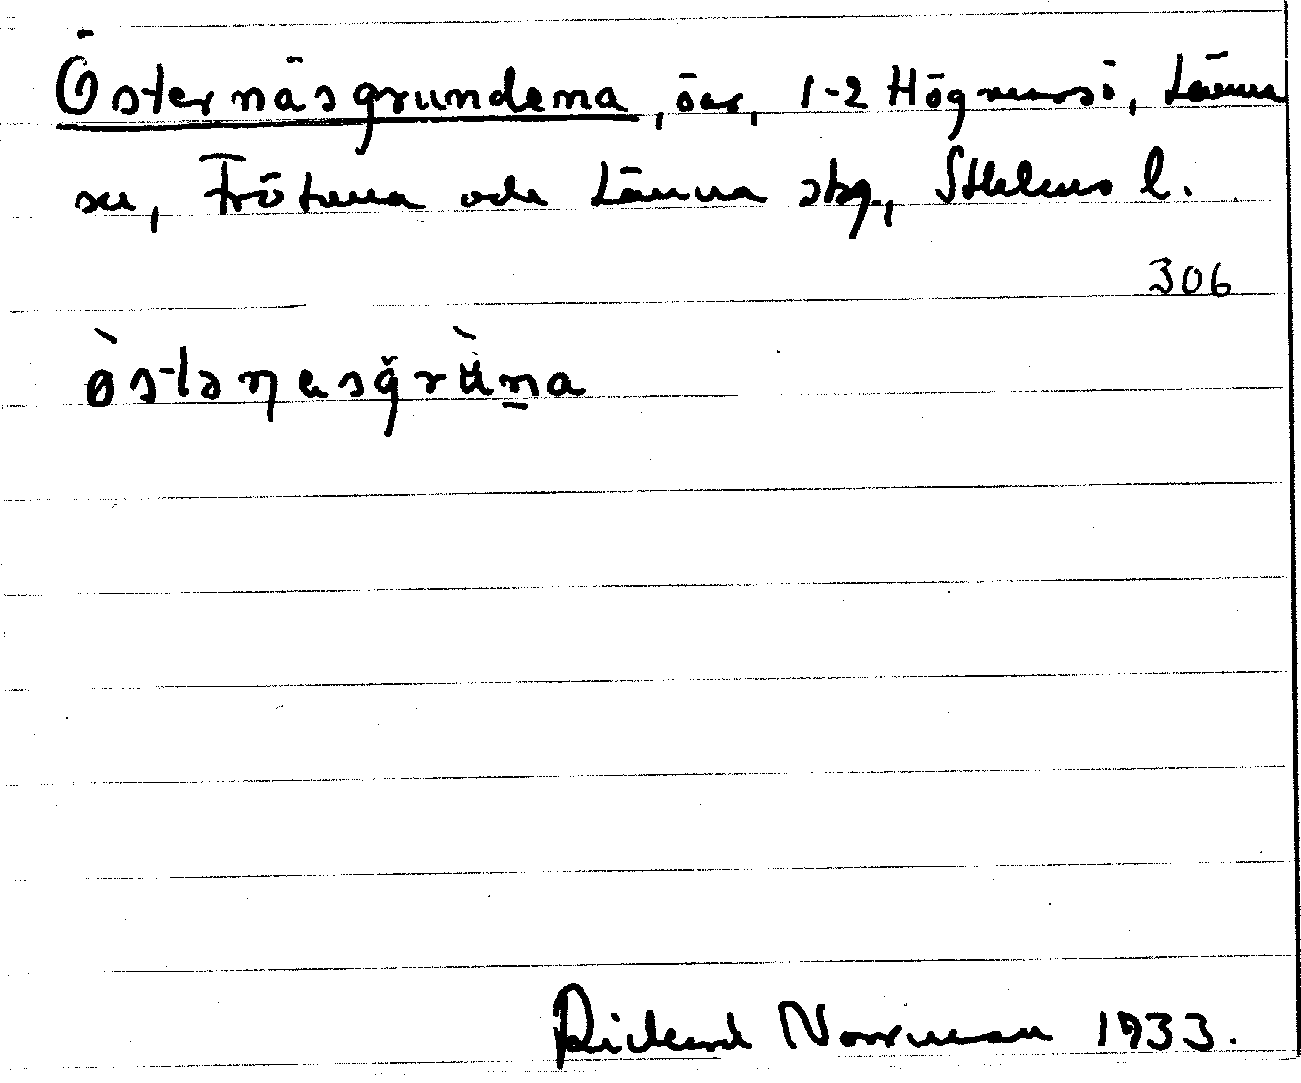 Östernäsgrundena, öar, 1-2 Högmarsö, Länna
sn, Frötuna och Länna skg., Sthlms l.
306
östəɳesgrùn̠a
Rickard Norrman 1933.